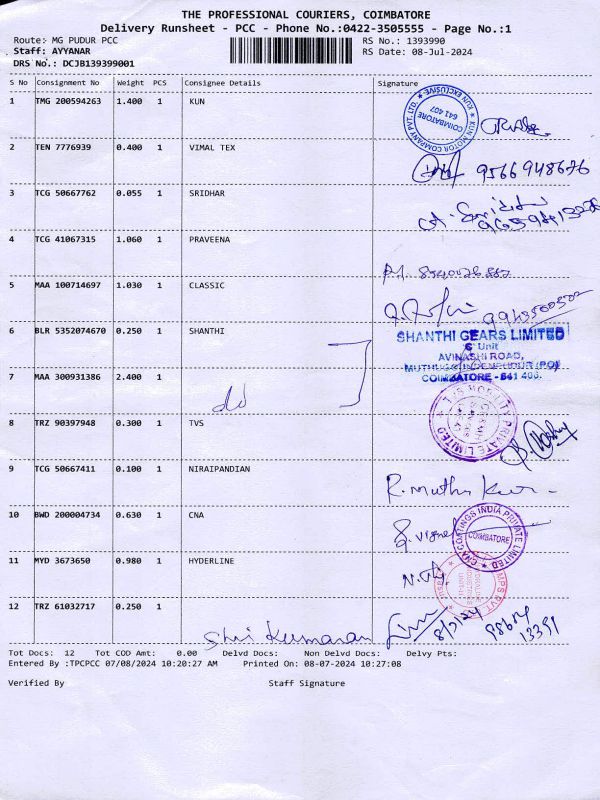 THE PROFESSIONAL COURIERS, COIMBATORE
Delivery Runsheet - PCC - Phone No.:0422-3505555 - Page No.:1
Route: MG PUDUR PCC RS No.: 1393990
Staff: AYYANAR RS Date: 08-Jul-2024
DRS No.: DCJB139399001
S No Consignment No Weight PCS Consignee Details Signature
1 TMG 200594263 1.400 1 KUN
KUN EXCLUSIVE KUN MOTOR COMPANY PVT. LTD. COIMBATORE 641 407
2 TEN 7776939 0.400 1 VIMAL TEX
9566948676
3 TCG 50667762 0.055 1 SRIDHAR
4 TCG 41067315 1.060 1 PRAVEENA
5 MAA 100714697 1.030 1 CLASSIC
6 BLR 5352074670 0.250 1 SHANTHI
SHANTHI GEARS LIMITED
Unit
AVINASHI ROAD,
COIMBATORE - 641 406.
7 MAA 300931386 2.400 1
8 TRZ 90397948 0.300 1 TVS
PRIVATE LIMITED
9 TCG 50667411 0.100 1 NIRAIPANDIAN
R. Muthu Kumar
10 BWD 200004734 0.630 1 CNA
CNA COATINGS INDIA PRIVATE LIMITED COIMBATORE
11 MYD 3673650 0.980 1 HYDERLINE
12 TRZ 61032717 0.250 1
Shri Kumaran 8/7/24 98684 13391
Tot Docs: 12 Tot COD Amt: 0.00 Delvd Docs: Non Delvd Docs: Delvy Pts:
Entered By :TPCPCC 07/08/2024 10:20:27 AM Printed On: 08-07-2024 10:27:08
Verified By Staff Signature